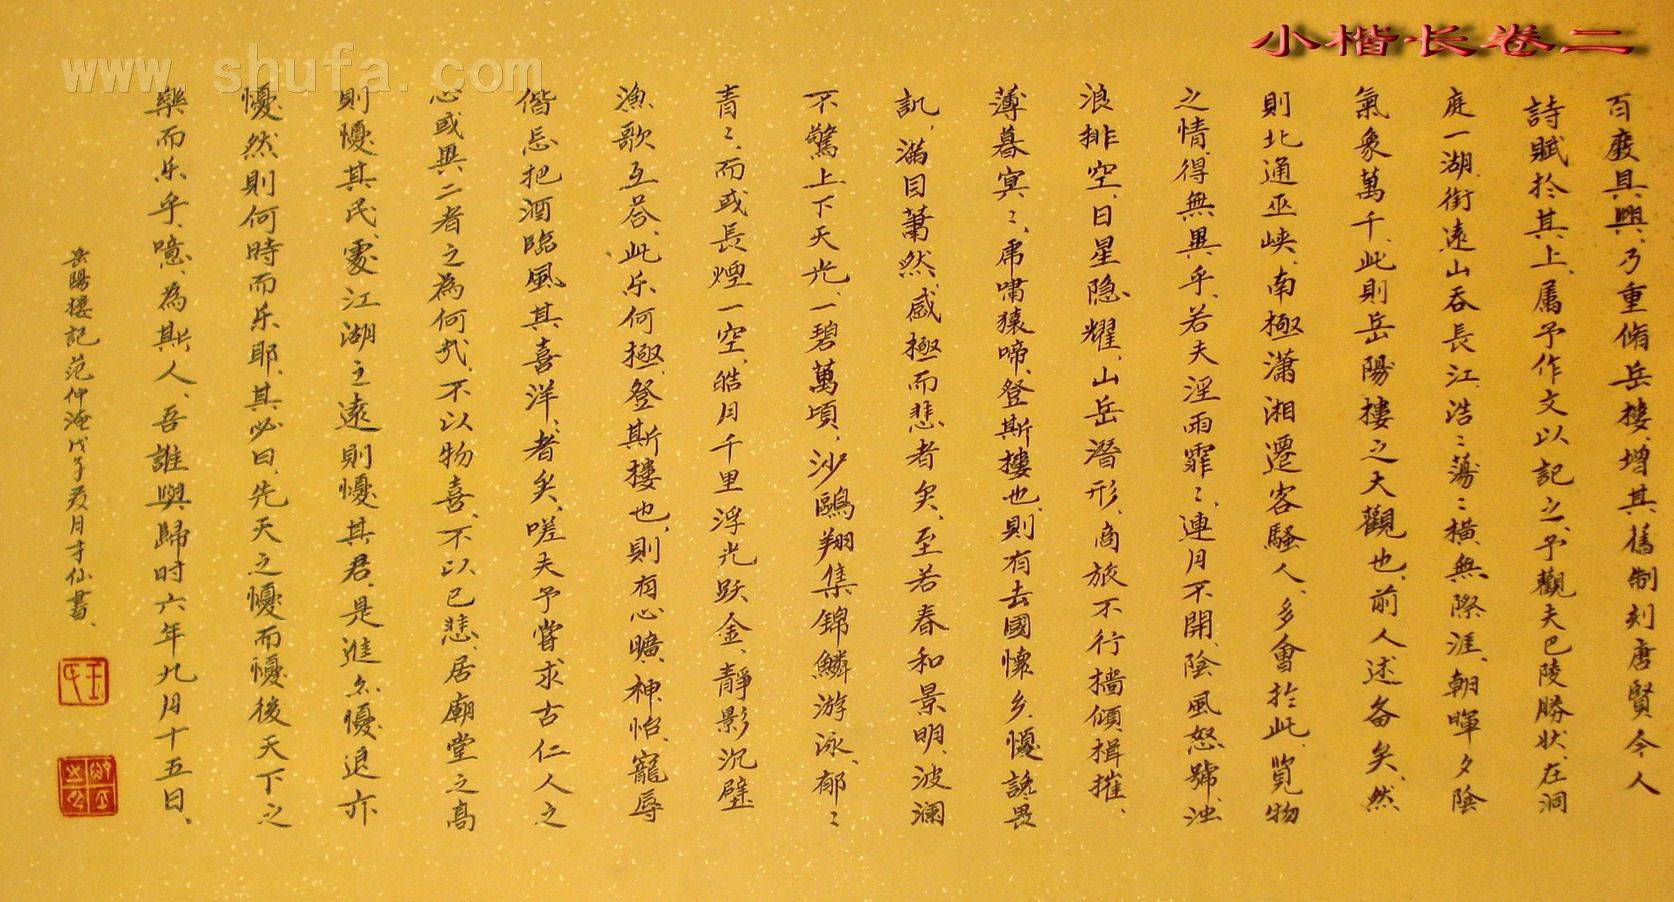 小楷长卷二
www.shufa.com
百廢具興、乃重脩岳樓、增其舊制刻唐賢今人
詩賦於其上、屬予作文以記之、予觀夫巴陵勝狀、在洞
庭一湖、銜遠山吞長江、浩〻蕩〻橫無際涯、朝暉夕陰
氣象萬千、此則岳陽樓之大觀也、前人述备矣、然
則北通巫峡、南極瀟湘遷客騷人、多會於此、览物
之情、得無異乎、若夫淫雨霏〻、連月不開、陰風怒號、浊
浪排空、日星隐耀、山岳潛形、商旅不行檣傾楫摧、
薄暮冥〻、虎嘯猿啼、登斯樓也、則有去國懷乡、懮讒畏
訊、滿目蕭然、感極而悲者矣、至若春和景明、波澜
不驚上下天光、一碧萬頃、沙鷗翔集錦鱗游泳、郁〻
青〻、而或長煙一空、皓月千里浮光跃金、靜影沉璧
漁歌互荅、此乐何極、登斯樓也、則有心曠、神怡、寵辱
偕忘把酒臨風其喜洋〻者矣、嗟夫予嘗求古仁人之
心或異二者之為何哉、不以物喜、不以己悲、居廟堂之高
則懮其民、處江湖之遠則懮其君、是進亦懮退亦
懮然則何時而乐耶、其必曰、先天之懮而懮後天下之
樂而乐乎、噫、為斯人、吾誰與歸时六年九月十五日、
岳陽樓記 范仲淹 戊子夏月才仙書、